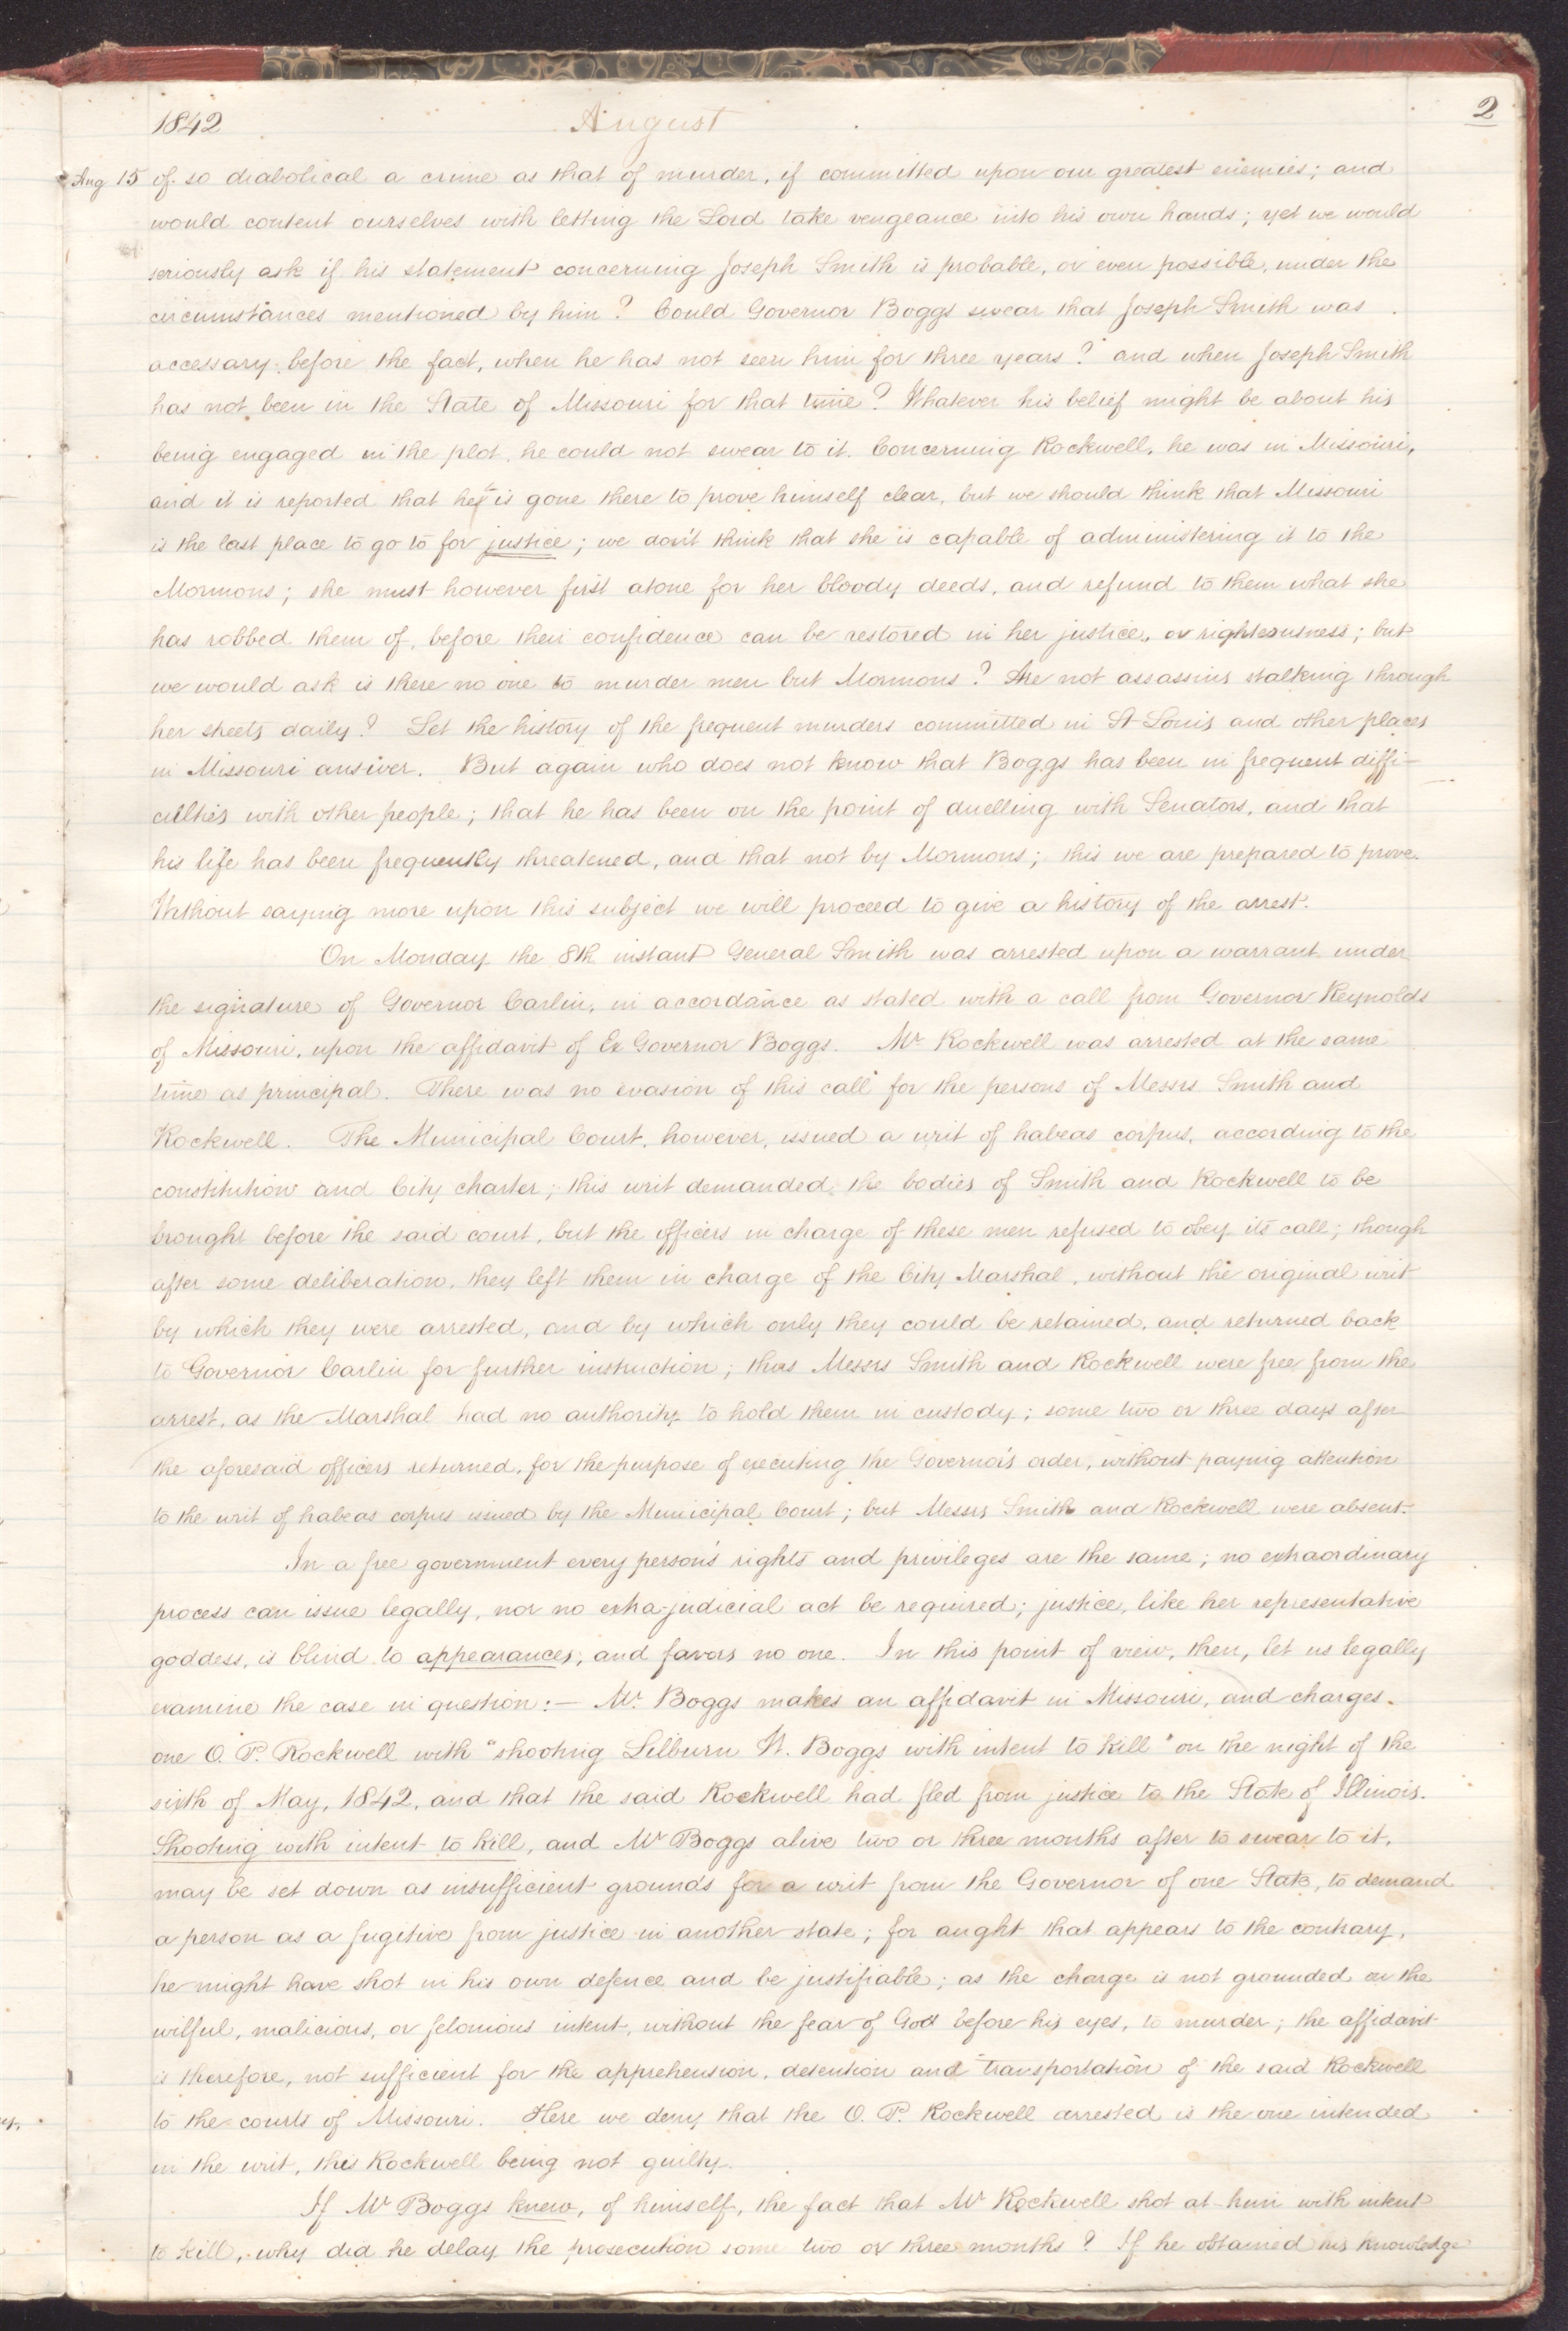 1842 August 2
Aug 15 of so diabolical a crime as that of murder, if committed upon our greatest enemies; and
would content ourselves with letting the Lord take vengeance into his own hands; yet we would
seriously ask if his statement concerning Joseph Smith is probable, or even possible, under the
circumstances mentioned by him? Could Governor Boggs swear that Joseph Smith was
accessary before the fact, when he has not seen him for three years? and when Joseph Smith
has not been in the State of Missouri for that time? Whatever his belief might be about his
being engaged in the plot, he could not swear to it. Concerning Rockwell, he was in Missouri,
and it is reported that he is gone there to prove himself clear, but we should think that Missouri
is the last place to go to for justice; we don't think that she is capable of administering it to the
Mormons; she must however first atone for her bloody deeds, and refund to them what she
has robbed them of, before their confidence can be restored in her justice, or righteousness; but
we would ask is there no one to murder men but Mormons? Are not assassins stalking through
her streets daily? Let the history of the frequent murders committed in St Louis and other places
in Missouri answer. But again who does not know that Boggs has been in frequent diffi-
culties with other people; that he has been on the point of duelling with Senators, and that
his life has been frequently threatened, and that not by Mormons; this we are prepared to prove.
Without saying more upon this subject we will proceed to give a history of the arrest.
On Monday the 8th instant General Smith was arrested upon a warrant under
the signature of Governor Carlin, in accordance as stated with a call from Governor Reynolds
of Missouri, upon the affidavit of Ex Governor Boggs. Mr Rockwell was arrested at the same
time as principal. There was no evasion of this call for the persons of Messrs Smith and
Rockwell. The Municipal Court, however, issued a writ of habeas corpus, according to the
constitution and City charter; this writ demanded the bodies of Smith and Rockwell to be
brought before the said court, but the officers in charge of these men refused to obey its call; though
after some deliberation, they left them in charge of the City Marshal, without the original writ
by which they were arrested, and by which only they could be retained, and returned back
to Governor Carlin for further instruction; thus Messrs Smith and Rockwell were free from the
arrest, as the Marshal had no authority to hold them in custody; some two or three days after
the aforesaid officers returned, for the purpose of executing the Governor's order, without paying attention
to the writ of habeas corpus issued by the Municipal Court; but Messrs Smith and Rockwell were absent.
In a free government every person's rights and privileges are the same; no extraordinary
process can issue legally, nor no extra-judicial act be required; justice, like her representative
goddess, is blind to appearances, and favors no one. In this point of view, then, let us legally
examine the case in question:— Mr Boggs makes an affidavit in Missouri, and charges
one O. P. Rockwell with "shooting Lilburn W. Boggs with intent to kill" on the night of the
sixth of May, 1842, and that the said Rockwell had fled from justice to the State of Illinois.
Shooting with intent to kill, and Mr Boggs alive two or three months after to swear to it,
may be set down as insufficient grounds for a writ from the Governor of one State, to demand
a person as a fugitive from justice in another state; for aught that appears to the contrary,
he might have shot in his own defence and be justifiable; as the charge is not grounded on the
wilful, malicious, or felonious intent, without the fear of God before his eyes, to murder; the affidavit
is therefore, not sufficient for the apprehension, detention and transportation of the said Rockwell
to the courts of Missouri. Here we deny that the O. P. Rockwell arrested is the one intended
in the writ, this Rockwell being not guilty.
If Mr Boggs knew, of himself, the fact that Mr Rockwell shot at him with intent
to kill, why did he delay the prosecution some two or three months? If he obtained his knowledge